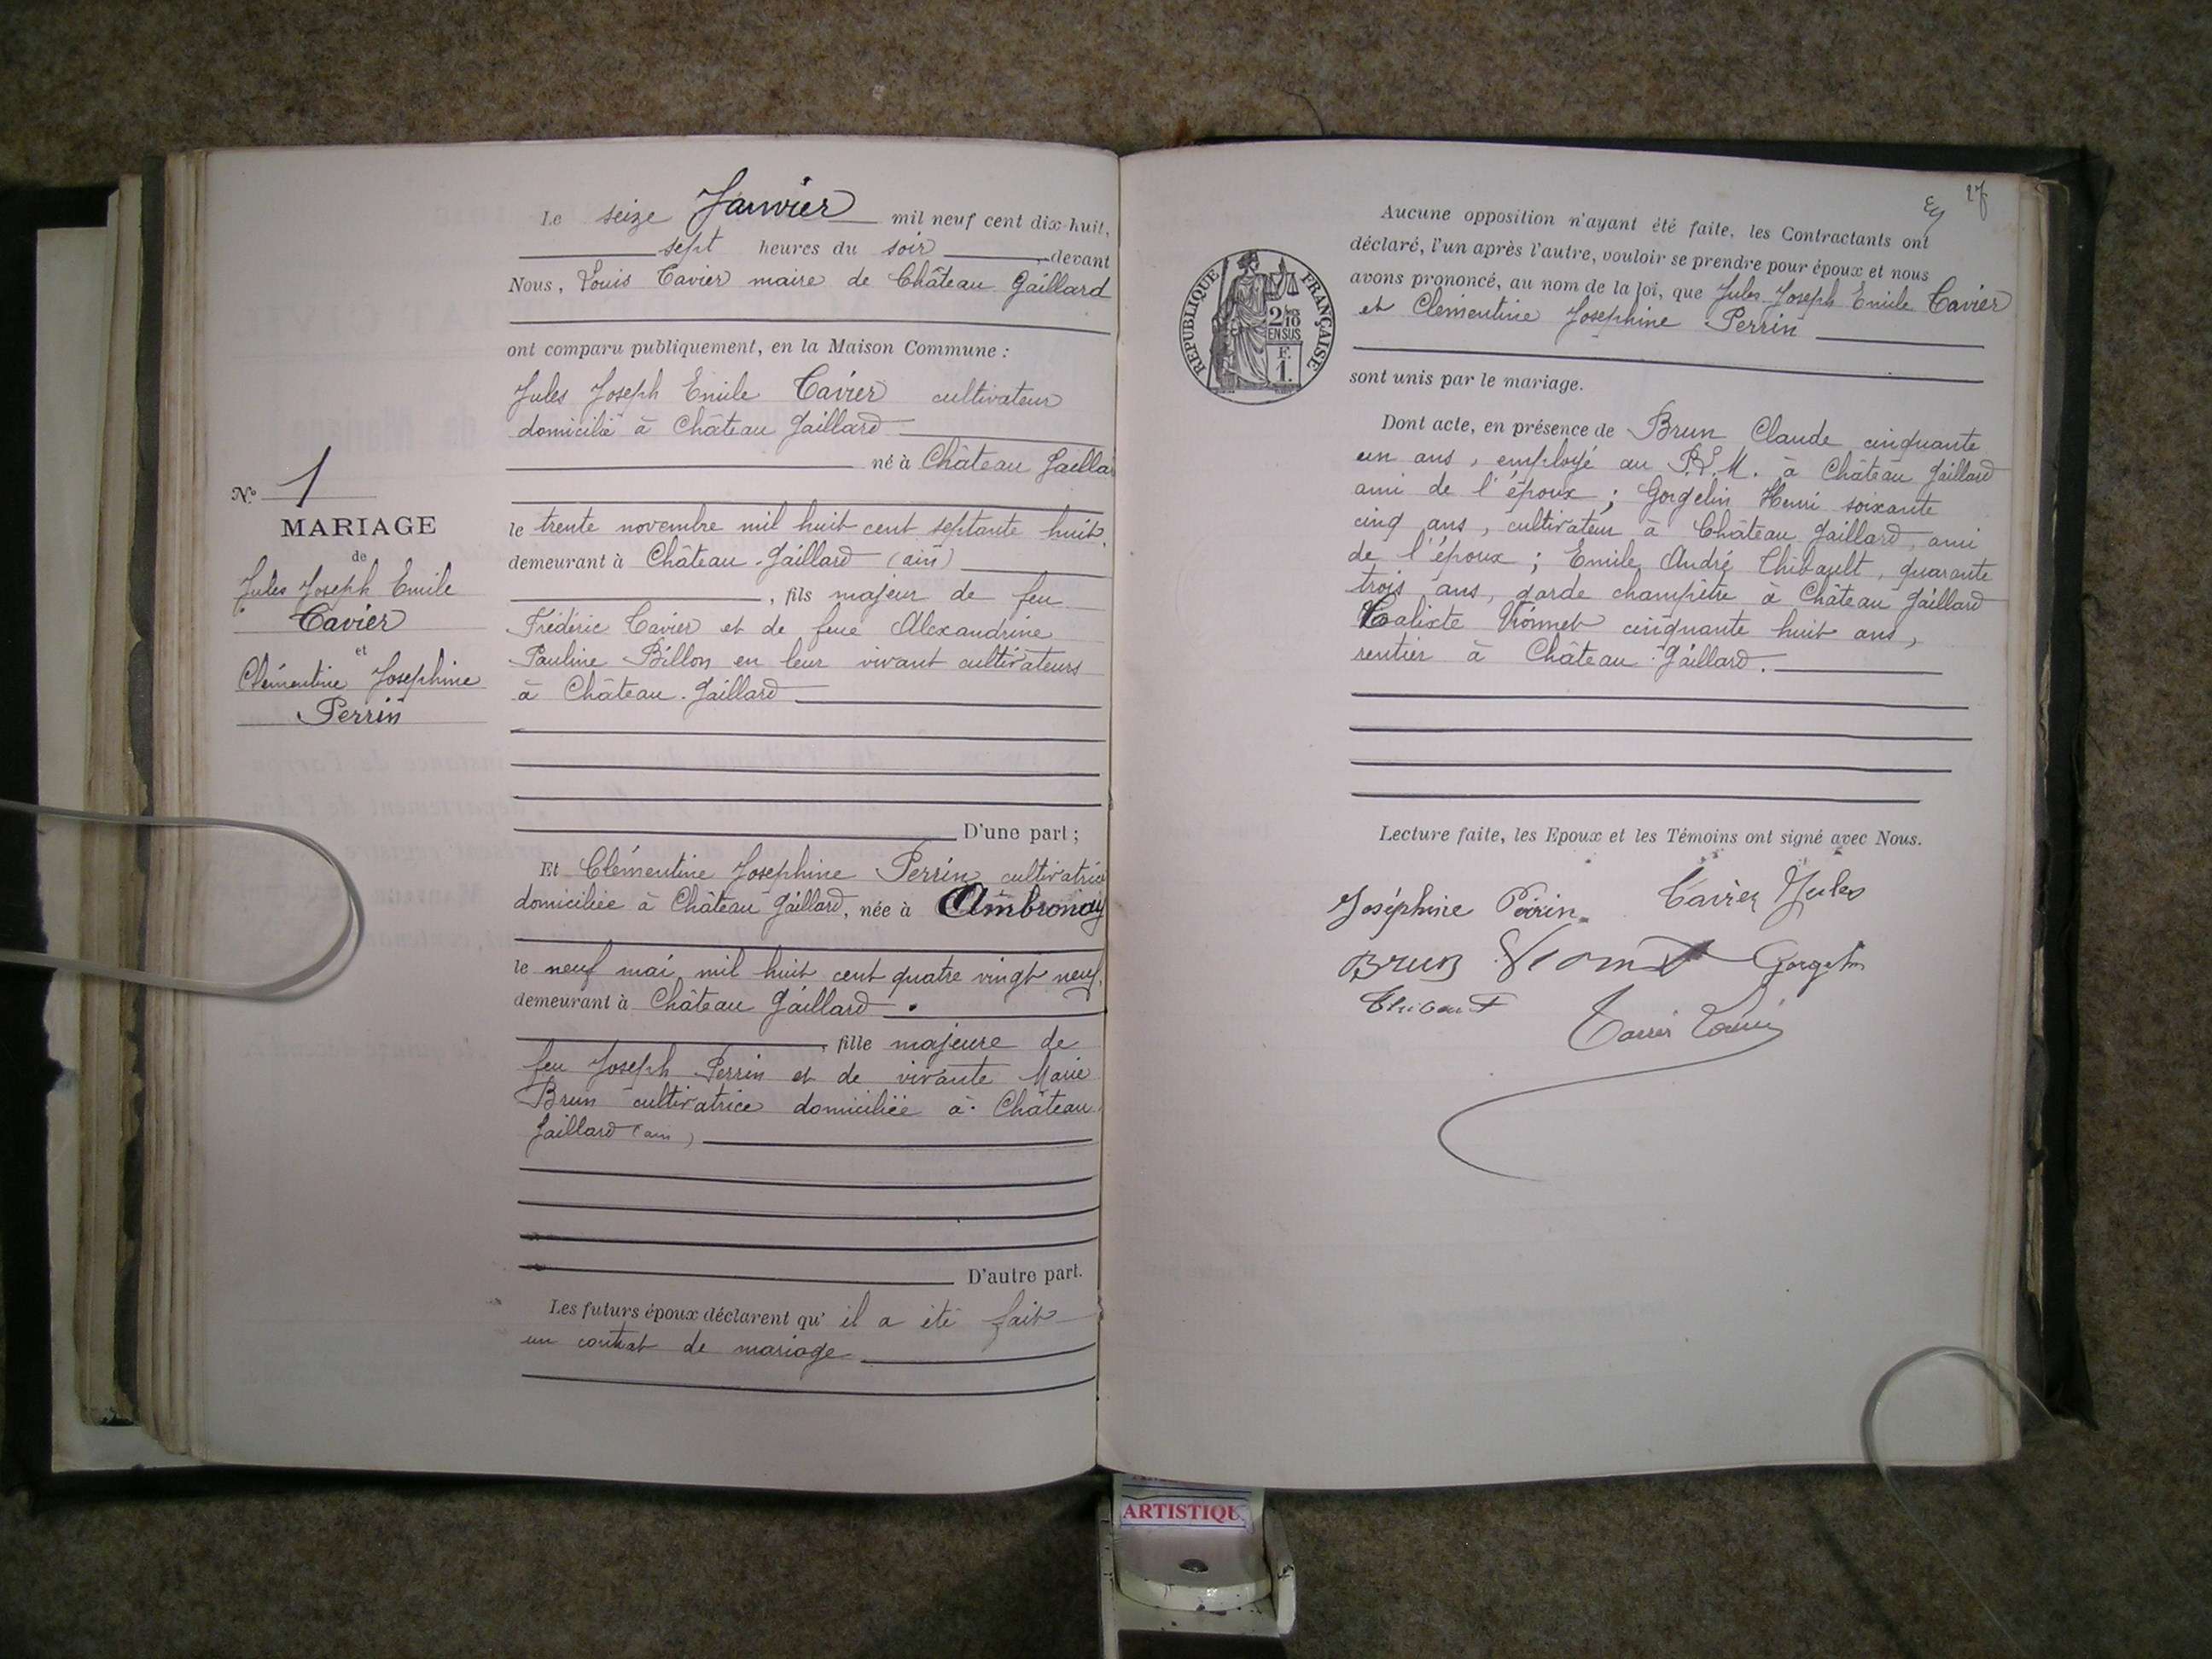 Le seize Janvier mil neuf cent dix-huit,
sept heures du soir, devant
Nous, Louis Cavier maire de Château Gaillard
ont comparu publiquement, en la Maison Commune :
Jules Joseph Emile Cavier cultivateur
domicilié à Château Gaillard
né à Château Gailla
le trente novembre mil huit cent septante huit,
demeurant à Château-Gaillard (ain)
, fils majeur de feu
Frédéric Cavier et de feue Alexandrine
Pauline Billon en leur vivant cultivateurs
à Château-Gaillard
D'une part ;
Et Clémentine Josephine Perrin cultivatrice
domiciliée à Château Gaillard, née à Ambronay
le neuf mai mil huit cent quatre vingt neuf,
demeurant à Château Gaillard
, fille majeure de
feu Joseph Perrin et de vivante Marie
Brun cultivatrice domiciliée à Château
Gaillard (ain)
D'autre part.
Les futurs époux déclarent qu' il a été fait
un contrat de mariage
N° 1
MARIAGE
de
Jules Joseph Emile
Cavier
et
Clémentine Josephine
Perrin
27
Aucune opposition n'ayant été faite, les Contractants ont
déclaré, l'un après l'autre, vouloir se prendre pour époux et nous
avons prononcé, au nom de la loi, que Jules Joseph Emile Cavier
et Clémentine Josephine Perrin
sont unis par le mariage.
RÉPUBLIQUE FRANÇAISE
2/10
EN SUS
F.
1.
Dont acte, en présence de Brun Claude cinquante
un ans, employé au P.L.M. à Château Gaillard
ami de l'époux ; Gorgelin Henri soixante
cinq ans, cultivateur à Château Gaillard, ami
de l'époux ; Emile André Thibault, quarante
trois ans, garde champêtre à Château Gaillard
Calixte Vionnet cinquante huit ans,
rentier à Château-Gaillard.
Lecture faite, les Epoux et les Témoins ont signé avec Nous.
Joséphine Perrin Cavier Jules
Brun Vionnet Gorgelin
Thibaut
Cavier Louis
ARTISTIQU